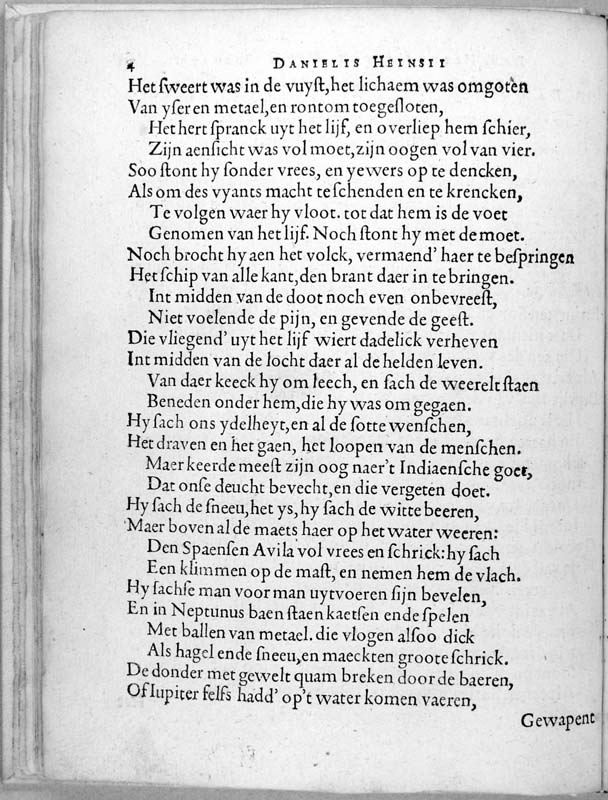 4 DANIELIS HEINSII
Het sweert was in de vuyst, het lichaem was omgoten
Van yser en metael, en rontom toegesloten,
Het hert spranck uyt het lijf, en overliep hem schier,
Zijn aensicht was vol moet, zijn oogen vol van vier.
Soo stont hy sonder vrees, en yewers op te dencken,
Als om des vyants macht te schenden en te krencken,
Te volgen waer hy vloot. tot dat hem is de voet
Genomen van het lijf. Noch stont hy met de moet.
Noch brocht hy aen het volck, vermaend' haer te bespringen
Het schip van alle kant, den brant daer in te bringen.
Int midden van de doot noch even onbevreest,
Niet voelende de pijn, en gevende de geest.
Die vliegend' uyt het lijf wiert dadelick verheven
Int midden van de locht daer al de helden leven.
Van daer keeck hy om leech, en sach de weerelt staen
Beneden onder hem, die hy was om gegaen.
Hy sach ons ydelheyt, en al de sotte wenschen,
Het draven en het gaen, het loopen van de menschen.
Maer keerde meest zijn oog naer't Indiaensche goet,
Dat onse deucht bevecht, en die vergeten doet.
Hy sach de sneeu, het ys, hy sach de witte beeren,
Maer boven al de maets haer op het water weeren:
Den Spaensen Avila vol vrees en schrick: hy sach
Een klimmen op de mast, en nemen hem de vlach.
Hy sachse man voor man uytvoeren sijn bevelen,
En in Neptunus baen staen kaetsen ende spelen
Met ballen van metael. die vlogen alsoo dick
Als hagel ende sneeu, en maeckten groote schrick.
De donder met gewelt quam breken door de baeren,
Of Iupiter selfs hadd' op't water komen vaeren,
Gewapent